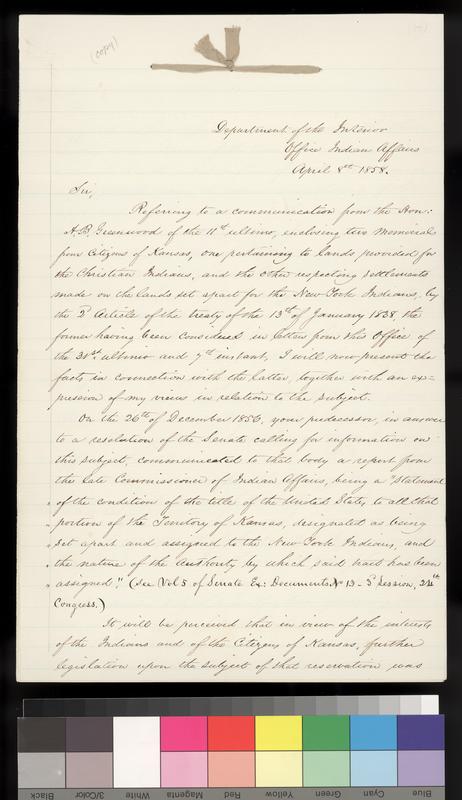 (copy)
Department of the Interior
Office Indian Affairs
April 8th 1858.
Sir,
Referring to a communication from the Hon:
A.B. Greenwood of the 11th ultimo, enclosing two memorials
from Citizens of Kansas, one pertaining to lands provided for
the Christian Indians, and the other respecting settlements
made on the lands set apart for the New York Indians, by
the 2d Article of the treaty of the 15th of January 1838, the
former having been considered in letters from this Office of
the 31st ultimo and 7th instant, I will now present the
facts in connection with the latter, together with an ex=
pression of my views in relation to the subject.
On the 26th of December 1856, your predecessor, in answer
to a resolution of the Senate calling for information on
this subject, communicated to that body a report from
the late Commissioner of Indian Affairs, being a "statement
" of the condition of the title of the United States, to all that
" portion of the Territory of Kansas, designated as being
" set apart and assigned to the New York Indians, and
" the nature of the authority by which said tract has been
" assigned." (See Vol 5 of Senate Ex: Documents No 13 - 3d Session, 34th
Congress.)
It will be perceived that in view of the interests
of the Indians and of the Citizens of Kansas, further
legislation upon the subject of that reservation was
Black
3/Color
White
Magenta
Red
Yellow
Green
Cyan
Blue